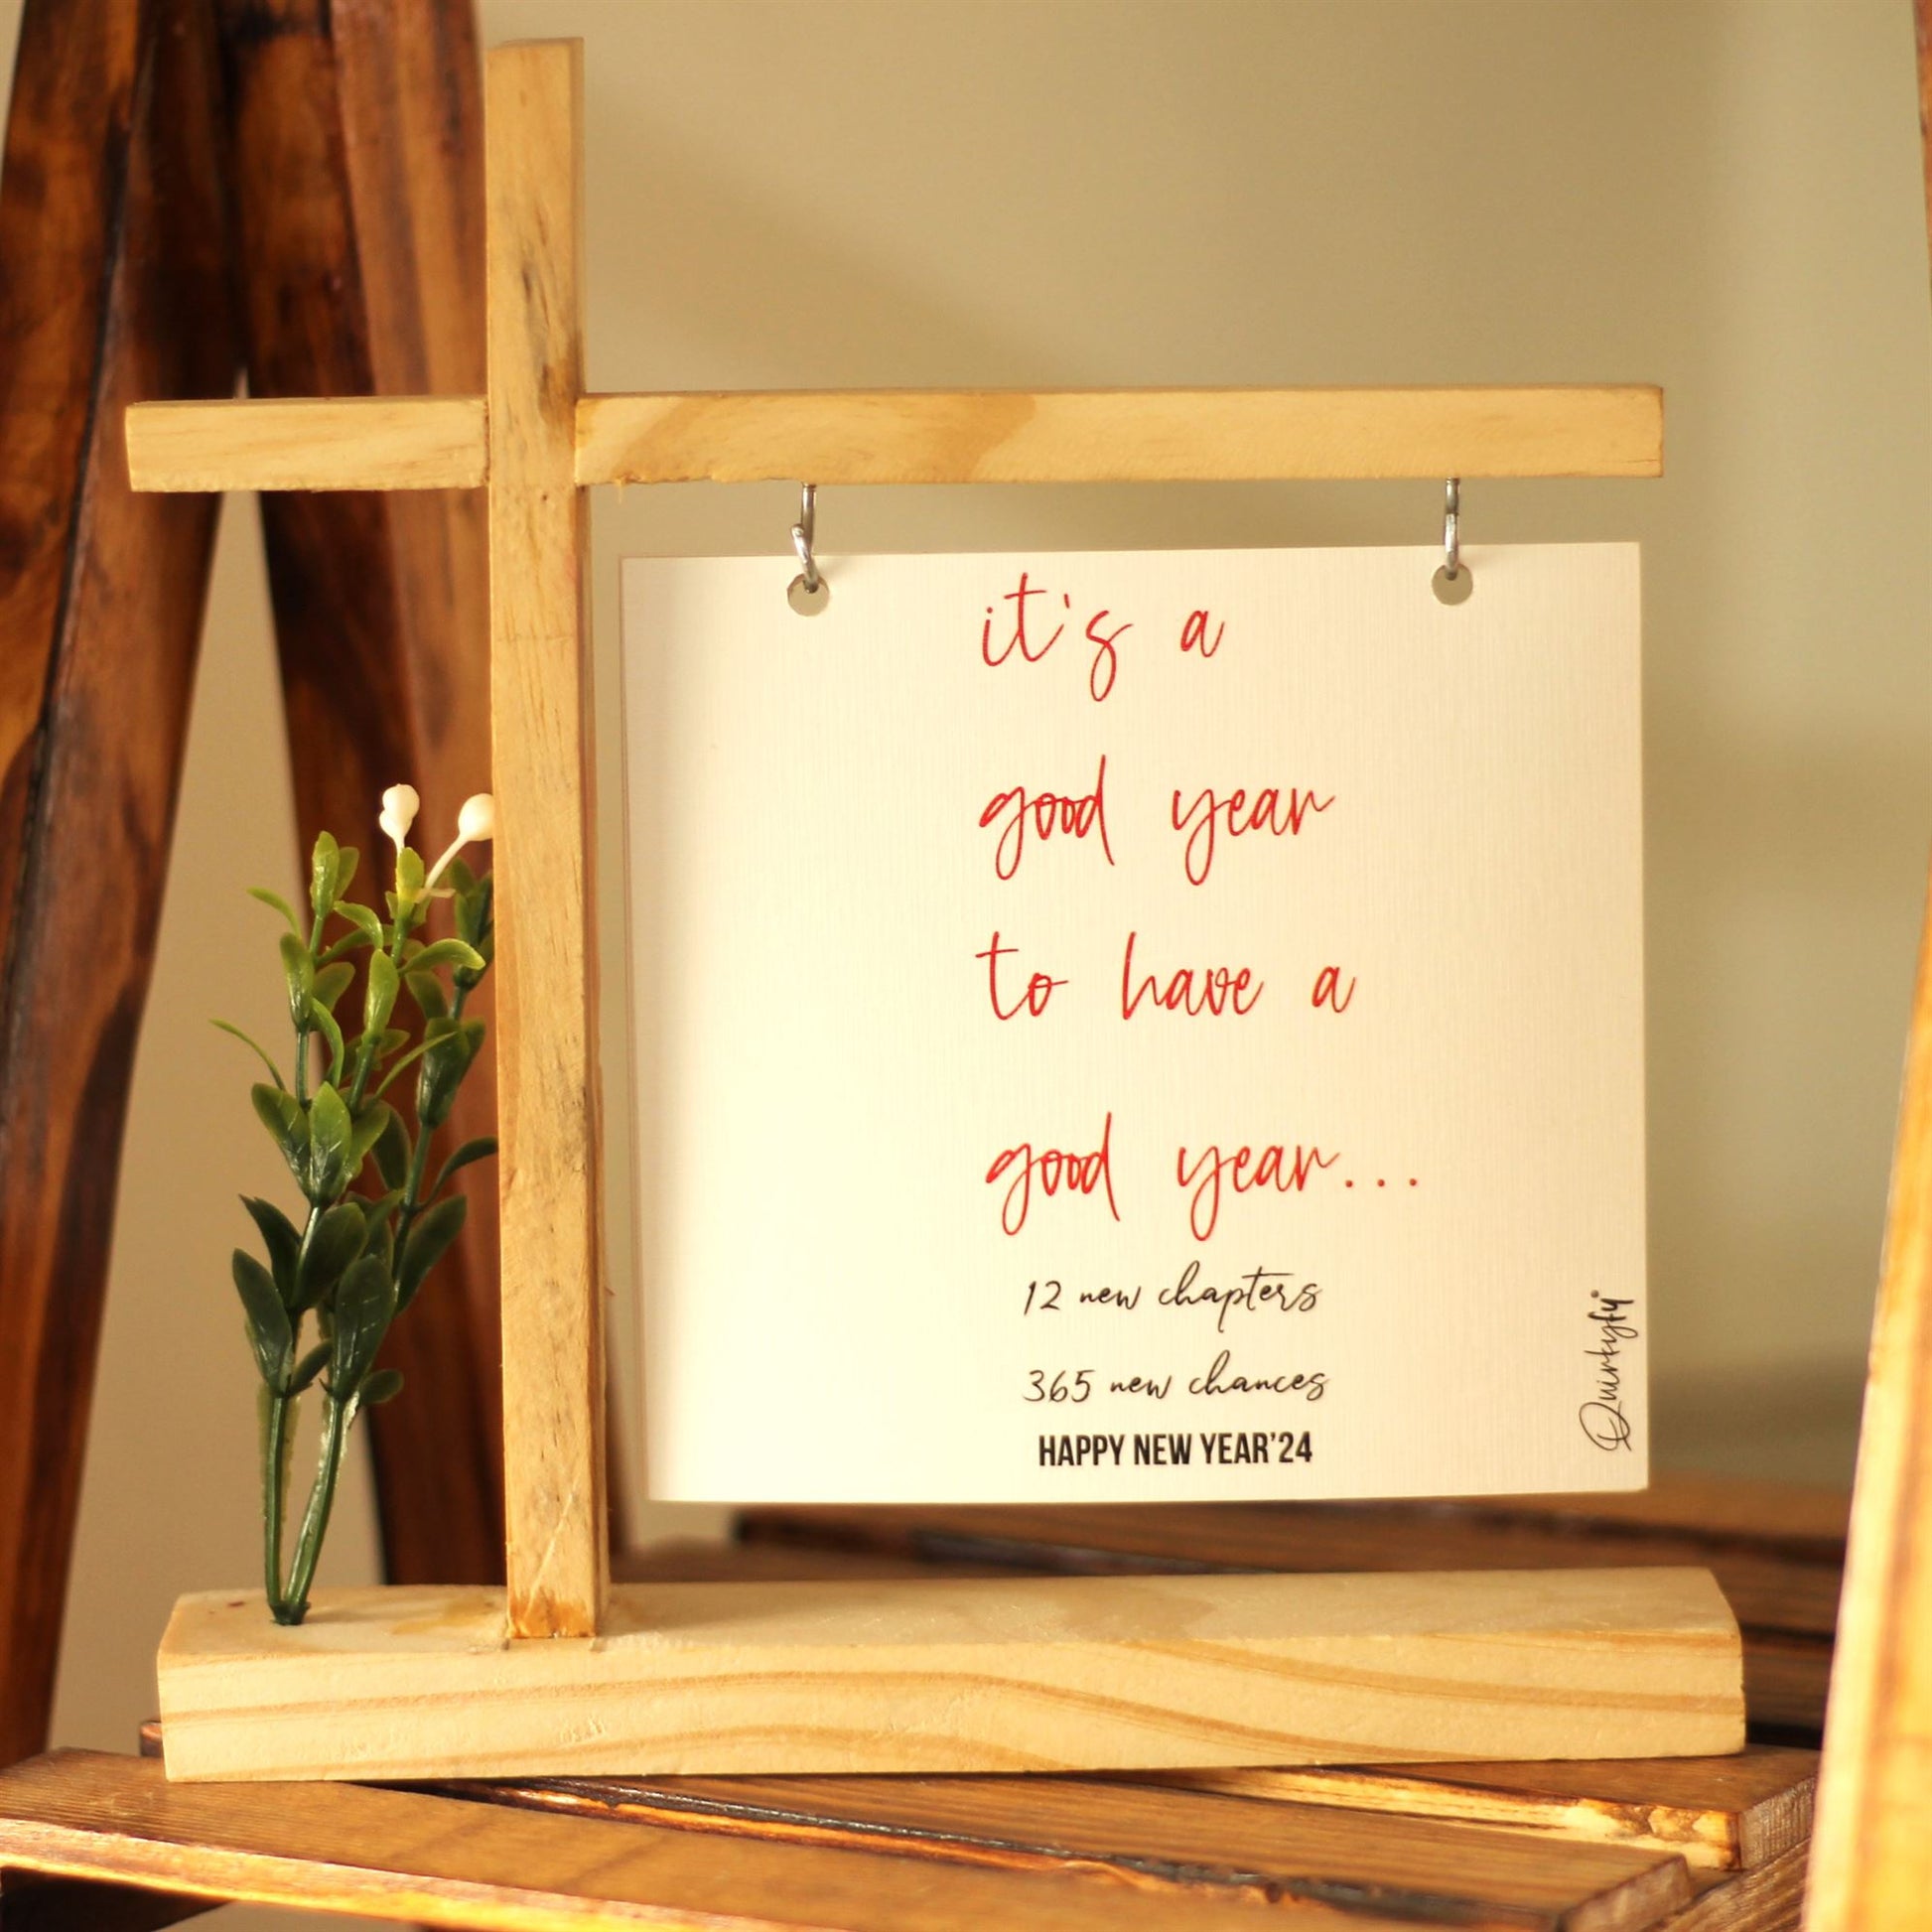 it's a
good year
to have a
good year...
12 new chapters
365 new chances
HAPPY NEW YEAR'24
Quirkyfy